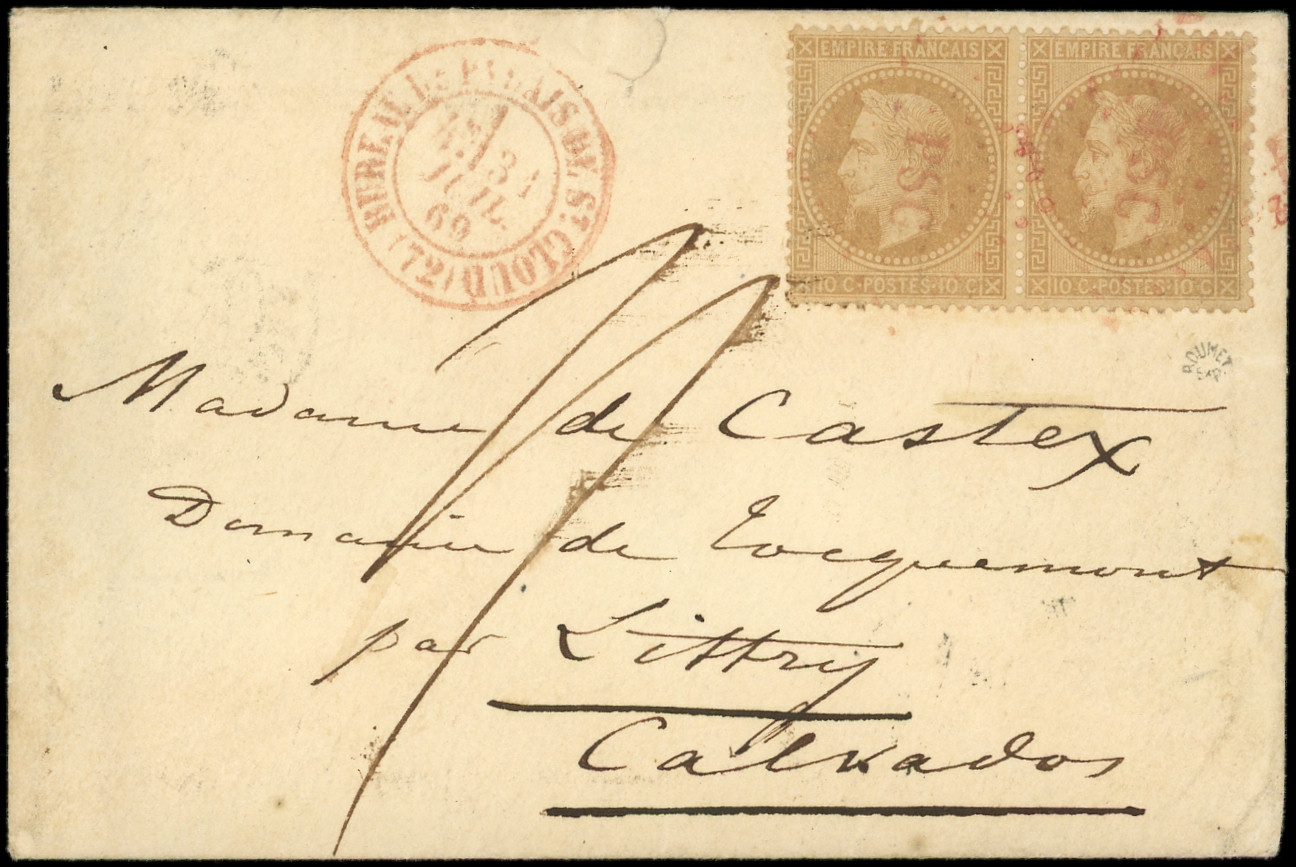 BUREAU DU PALAIS DE St CLOUD (72)
31
JUIL
69
EMPIRE FRANÇAIS
10 C · POSTES · 10 C
PSC
EMPIRE FRANÇAIS
10 C · POSTES · 10 C
PSC
ROUMET
Madame de Castex
Domaine de Tocquemont
par Littry
Calvados